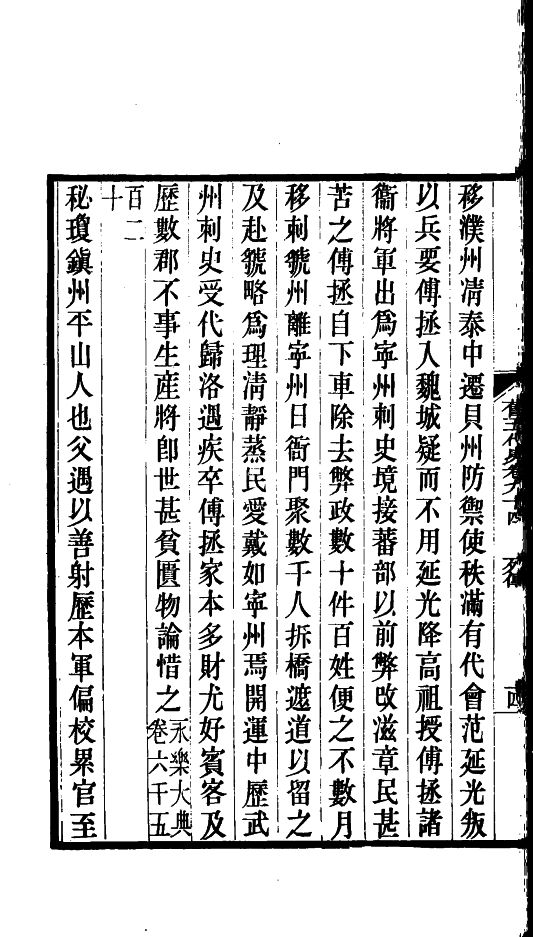 移濮州清泰中遷貝州防禦使秩滿有代會范延光叛
以兵要傅拯入魏城疑而不用延光降高祖授傅拯諸
衞將軍出爲寧州刺史境接蕃部以前弊政滋章民甚
苦之傅拯自下車除去弊政數十件百姓便之不數月
移刺虢州離寧州日衙門聚數千人拆橋遮道以留之
及赴虢略爲理淸靜蒸民愛戴如寧州焉開運中歷武
州刺史受代歸洛遇疾卒傅拯家本多財尤好賓客及
歷數郡不事生產將卽世甚貧匱物論惜之永樂大典卷六千五
百二
十
秘瓊鎭州平山人也父遇以善射歷本軍偏校累官至